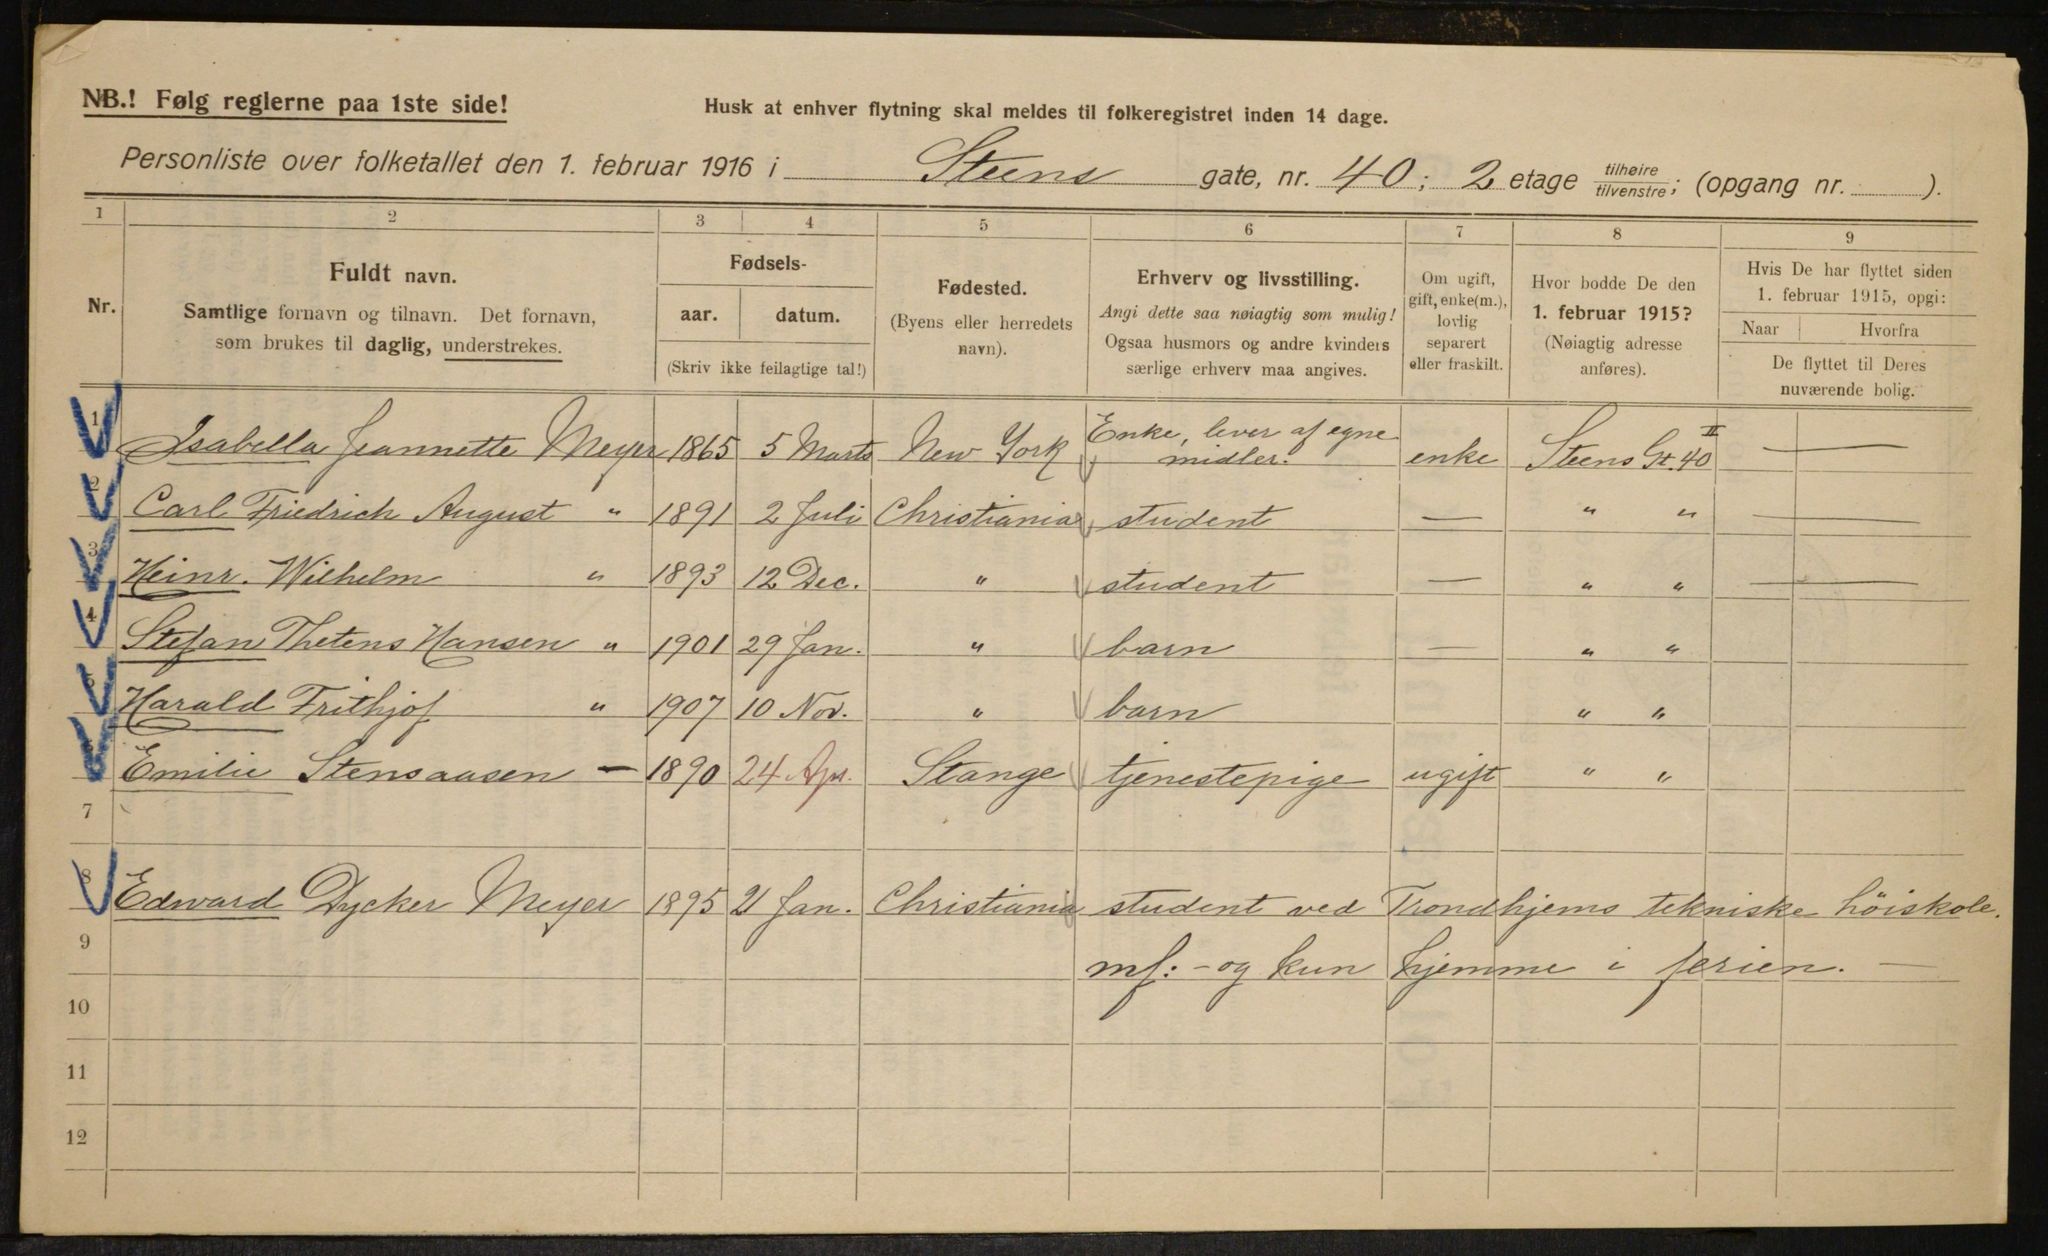 NB.! Følg reglerne paa 1ste side!
Husk at enhver flytning skal meldes til folkeregistret inden 14 dage.
Personliste over folketallet den 1. februar 1916 i Steens gate, nr. 40; 2 etage tilhøire tilvenstre; (opgang nr. ).
1 2 3 4 5 6 7 8 9
Nr.
Fuldt navn.
Samtlige fornavn og tilnavn. Det fornavn,
som brukes til daglig, understrekes.
Fødsels-
aar. datum.
(Skriv ikke feilagtige tal!)
Fødested.
(Byens eller herredets
navn).
Erhverv og livsstilling.
Angi dette saa nøiagtig som mulig!
Ogsaa husmors og andre kvinders
særlige erhverv maa angives.
Om ugift,
gift, enke(m.),
lovlig
separert
eller fraskilt.
Hvor bodde De den
1. februar 1915?
(Nøiagtig adresse
anføres).
Hvis De har flyttet siden
1. februar 1915, opgi:
Naar Hvorfra
De flyttet til Deres
nuværende bolig.
1 Isabella Jeannette Meyer 1865 5 Marts New York Enke, lever af egne midler. enke Steens Gt. 40 II — —
2 Carl Friedrich August " 1891 2 Juli Christiania student — " " —
3 Heinr. Wilhelm " 1893 12 Dec. " student — " " —
4 Stefan Thetens Hansen " 1901 29 Jan. " barn — " "
5 Harald Frithjof " 1907 10 Nov. " barn " "
6 Emilie Stensaasen — 1890 24 Apr. Stange tjenestepige ugift " "
7
8 Edward Dycker Meyer 1895 21 Jan. Christiania student ved Trondhjems tekniske höiskole.
9 mf: – og kun hjemme i ferien. —
10
11
12